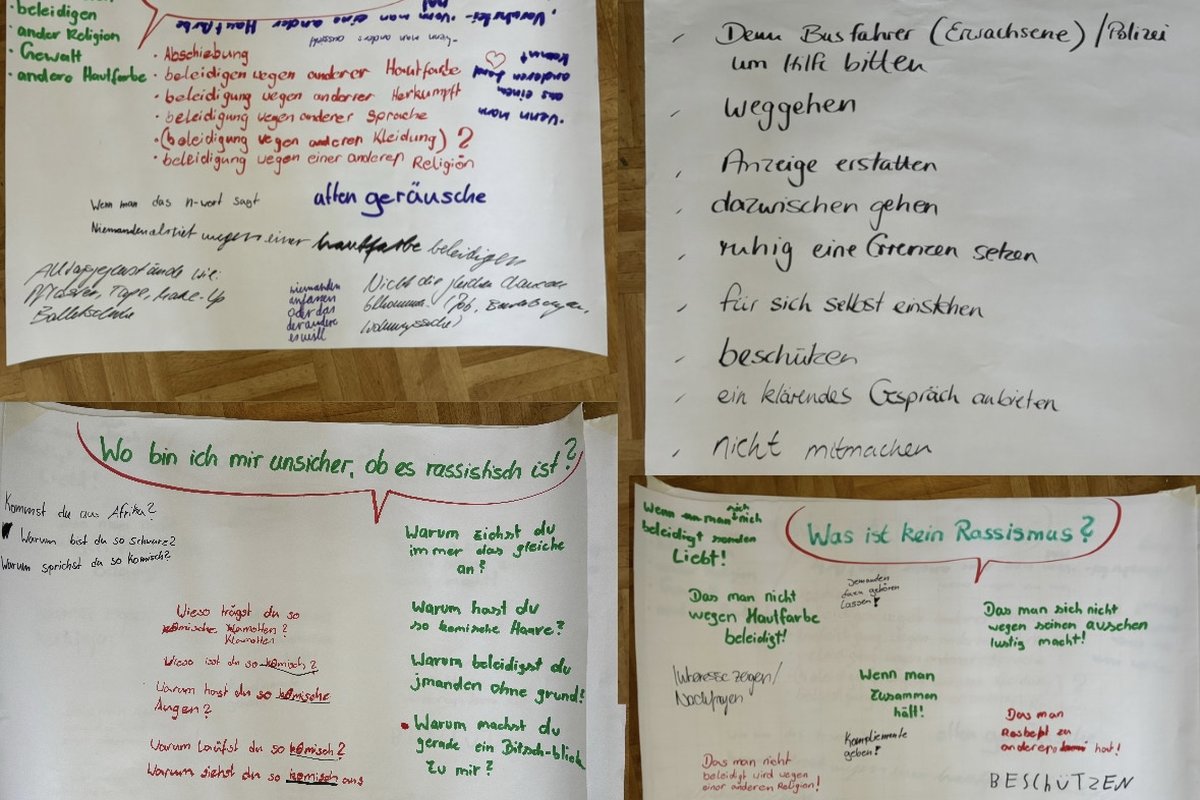 beleidigen
ander Religion
Gewalt
andere Hautfarbe
· Vorurteil · wenn man eine ander Hautfarbe
hat
wenn man anders aussieht
· wenn man
aus einem
anderen Land
kommt
· Abschiebung
· beleidigen wegen anderer Hautfarbe
· beleidigung wegen anderer Herkumpft
· beleidigung wegen anderer Sprache
· (beleidigung wegen anderen Kleidung) ?
· beleidigung wegen einer anderen Religion
Wenn man das n-wort sagt
affen geräusche
Niemanden wegen einer hautfarbe beleidigen
Alltagsgegenstände wie:
Pflaster, Tape, Make-Up
Ballettschuhe
niemanden
anfassen
oder das
der andere
es will
Nicht die gleichen Chancen
bekommen (Job, Bewerbungen,
Wohnungssuche)
Denn Busfahrer (Erwachsene) / Polizei
um Hilfe bitten
weggehen
Anzeige erstatten
dazwischen gehen
ruhig eine Grenzen setzen
für sich selbst einstehen
beschützen
ein klärendes Gespräch anbieten
nicht mitmachen
Wo bin ich mir unsicher, ob es rassistisch ist?
Kommst du aus Afrika?
Warum bist du so schwarz?
Warum sprichst du so komisch?
Wieso trägst du so
komische Klamotten?
Klamotten
Wieso isst du so komisch?
Warum hast du so komische
Augen?
Warum läufst du so komisch?
Warum siehst du so komisch aus
Warum ziehst du
immer das gleiche
an?
Warum hast du
so komische Haare?
Warum beleidigst du
jmanden ohne grund?
· Warum machst du
gerade ein Bitsch-blick
zu mir?
Was ist kein Rassismus?
Wenn man nich
beleidigt sonden
Liebt!
Das man nicht
wegen Hautfarbe
beleidigt!
Jemanden
dazu gehören
lassen!
Das man sich nicht
wegen seinen ausehen
lustig macht!
Interesse zeigen/
Nachfragen
Wenn man
Zusammen
hält!
Komplimente
geben!
Das man
Resbeckt zu
anderen hat!
Das man nicht
beleidigt wird wegen
einer anderen Religion!
BESCHÜTZEN